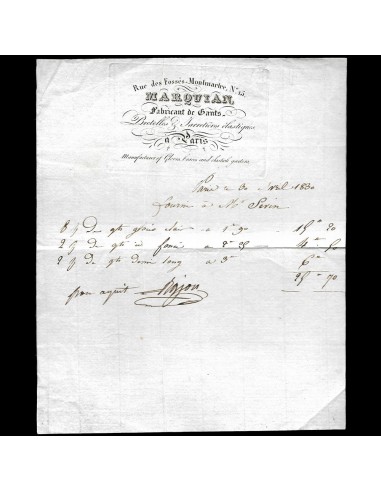 Rue des Fossés-Montmartre, No. 15
MARQUIAN,
Fabricant de Gants,
Bretelles & Jarretières élastiques
à Paris
Manufacturer of Gloves, braces and elastick garters
Paris ce 30 Avril 1830
Fourni à Mr Perin
8 p de gts a 1 90 15 20
2 p de gts a 2 25 4 50
2 p de gts demi long a 3 6
25 70
pour acquit